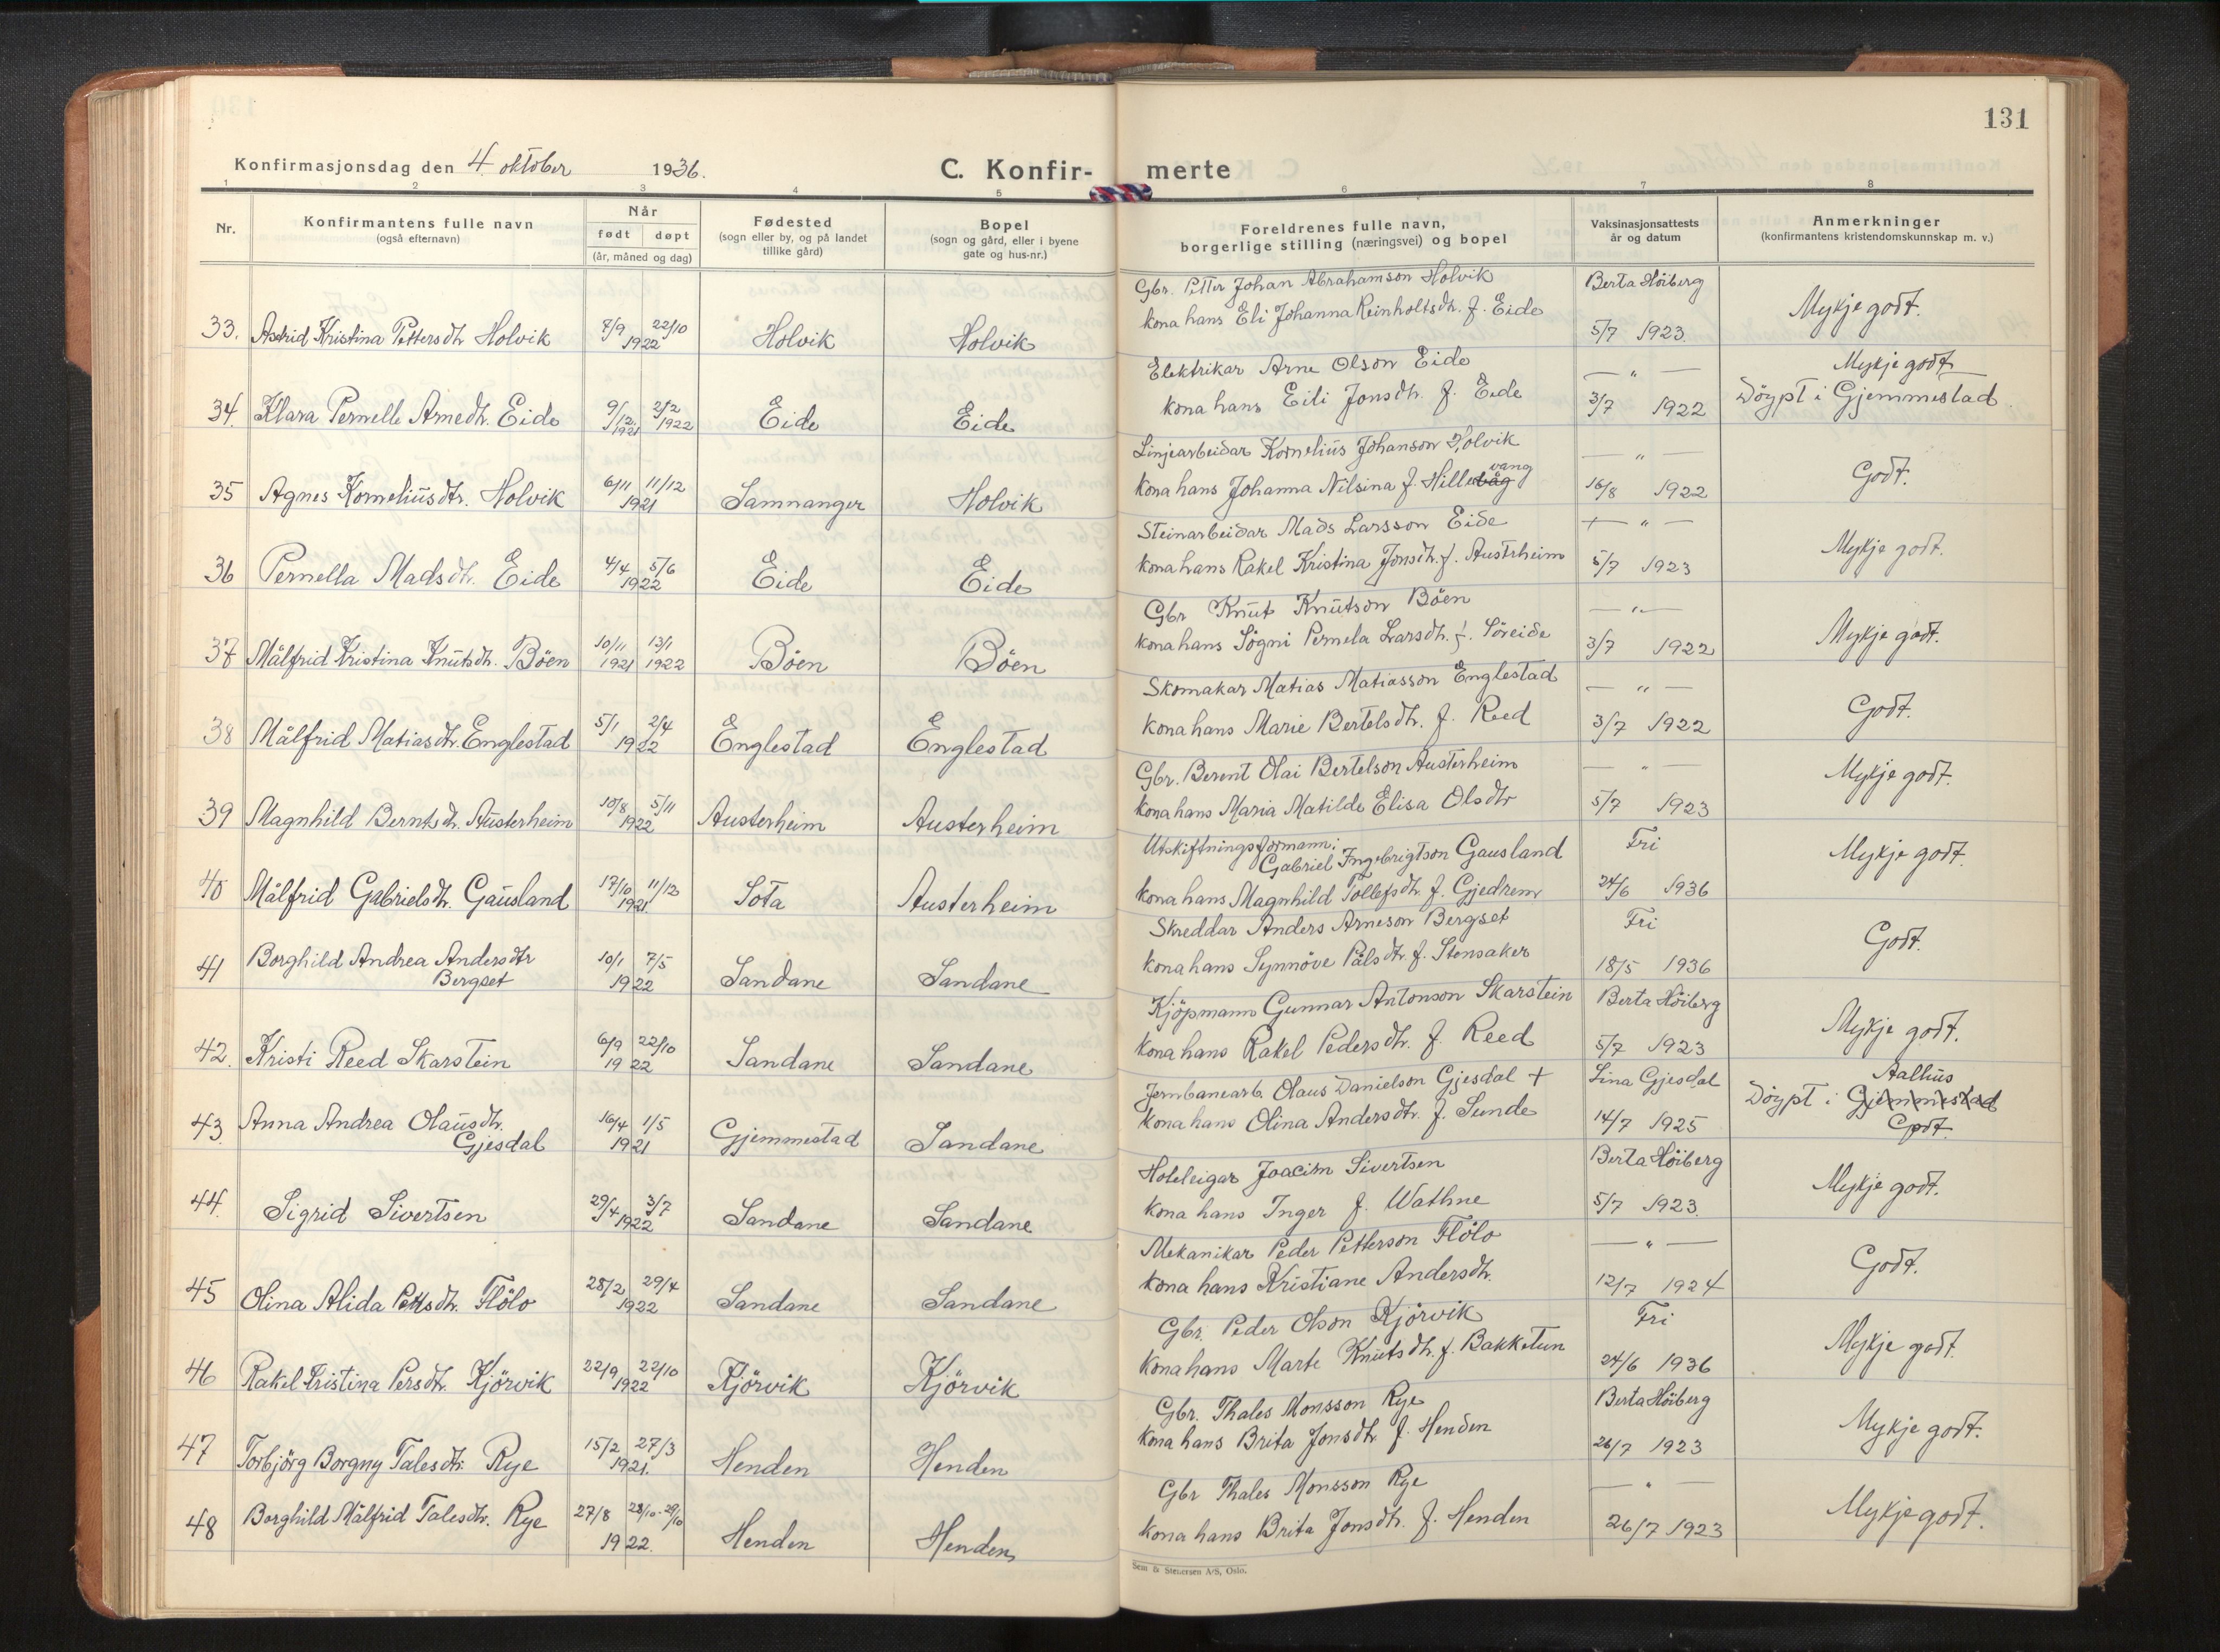 131
Konfirmasjonsdag den 4. oktober 1936.
C. Konfir- merte
1 2 3 4 5 6 7 8
Nr.
Konfirmantens fulle navn
(også efternavn)
Når
født døpt
(år, måned og dag)
Fødested
(sogn eller by, og på landet
tillike gård)
Bopel
(sogn og gård, eller i byene
gate og hus-nr.)
Foreldrenes fulle navn,
borgerlige stilling (næringsvei) og bopel
Vaksinasjonsattests
år og datum
Anmerkninger
(konfirmantens kristendomskunnskap m. v.)
Gbr. Petter Johan Abrahamson Holvik Berta Höiberg
33. Astrid Kristina Pettersdtr Holvik 7/9 22/10 1922 Holvik Holvik kona hans Eli Johanna Reinholtsdtr. f. Eide 5/7 1923. Mykje godt.
Elektrikar Arne Olson Eide — " — Mykje godt
34. Klara Pernelle Arnedtr. Eide 9/12 1921 2/2 1922 Eide Eide kona hans Eili Jonsdtr. f. Eide 3/7 1922 Döypt i Gjemmestad.
Linjearbeidar Kornelius Johanson Holvik — " —
35 Agnes Korneliusdtr. Holvik 6/11 11/12 1921 Samnanger Holvik kona hans Johanna Nilsina f. Hillebåg vang 16/8 1922 Godt.
Steinarbeidar Mads Larsson Eide — " —
36 Pernella Madsdtr. Eide 4/4 5/6 1922 Eide Eide kona hans Rakel Kristina Jonsdtr. f. Austrheim 5/7 1923 Mykje godt.
Gbr Knut Knutson Böen — " —
37 Målfrid Kristina Knutsdtr. Böen 10/11 1921 13/1 1922 Böen Böen kona hans Sögni Pernela Larsdtr. f. Söreide 3/7 1922 Mykje godt.
Skomakar Matias Matiasson Englestad — " —
38 Målfrid Matiasdtr. Englestad 5/1 2/4 1922 Englestad Englestad kona hans Marie Bertelsdtr. f. Reed 3/7 1922 Godt.
Gbr. Berent Olai Bertelson Austerheim — " —
39 Magnhild Berntsdtr. Austerheim 10/8 5/11 1922 Austerheim Austerheim kona hans Maria Matilde Elisa Olsdtr 5/7 1923 Mykje godt.
Utskiftningsformann:
Gabriel Ingebrigtson Gausland Fri
40 Målfrid Gabrielsdtr. Gausland 17/10 11/12 1921. Sota Austerheim kona hans Magnhild Tollefsdtr f. Gjedrem 24/6 1936 Mykje godt.
Skreddar Anders Arneson Bergset Fri
41 Borghild Andrea Andersdtr Bergset 10/1 7/5 1922 Sandane Sandane kona hans Synnöve Pålsdtr. f. Stensaker 18/5 1936 Godt.
Kjöpmann Gunnar Antonson Skarstein Berta Höiberg
42. Kristi Reed Skarstein 6/9 22/10 1922 Sandane Sandane kona hans Rakel Pedersdtr. f. Reed 5/7 1923 Mykje godt.
Jernbanearb. Olaus Danielson Gjesdal + Lina Gjesdal Aalhus
43. Anna Andrea Olausdtr. Gjesdal 16/4 1/5 1921 Gjemmestad Sandane kona hans Olina Andersdtr. f. Sunde 14/7 1925 Döypt i Gjemmestad Godt.
Hoteleigar Joacim Sivertsen Berta Höiberg
44. Sigrid Sivertsen 29/4 3/7 1922 Sandane Sandane kona hans Inger f. Wathne 5/7 1923. Mykje godt.
Mekanikar Peder Petterson Flölo — " —
45 Olina Alida Pettsdtr. Flölo 28/2 29/4 1922 Sandane Sandane kona hans Kristiane Andersdtr. 12/7 1924 Godt.
Gbr. Peder Olson Kjörvik Fri
46 Rakel Kristina Persdtr. Kjörvik 22/9 22/10 1922 Kjörvik Kjörvik kona hans Marte Knutsdtr. f. Bakketun 24/6 1936 Mykje godt.
Gbr. Thales Monsson Rye Berta Höiberg
47 Torbjörg Borgny Talesdtr. Rye 15/2 27/3 1921. Henden Henden kona hans Brita Jonsdtr f. Henden 26/7 1923 Mykje godt.
Gbr Thales Monsson Rye — " —
48 Borghild Målfrid Talesdtr. Rye 27/8 1922. Henden Henden kona hans Brita Jonsdtr. f. Henden 26/7 1923 Mykje godt.
Sem & Stenersen A/S, Oslo.